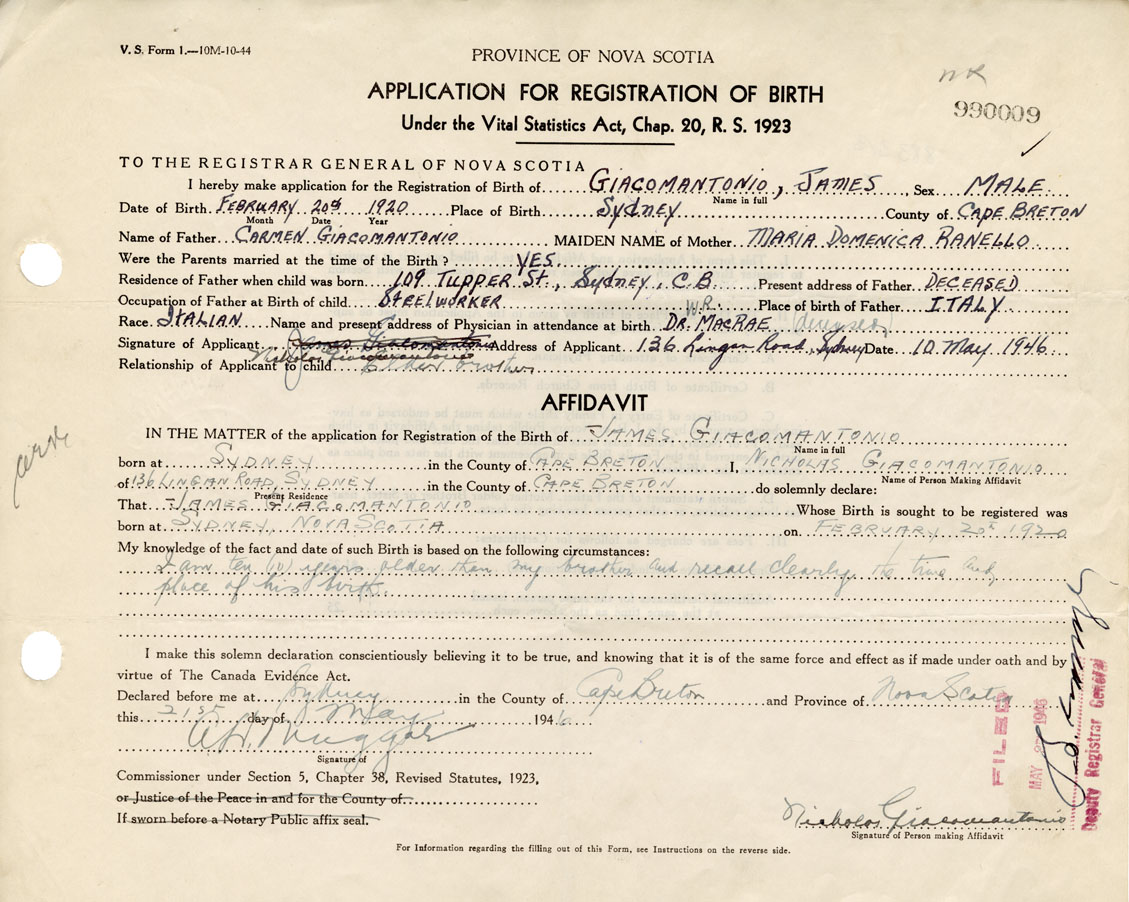 V. S. Form 1.—10M-10-44
PROVINCE OF NOVA SCOTIA
APPLICATION FOR REGISTRATION OF BIRTH
Under the Vital Statistics Act, Chap. 20, R. S. 1923
990009
TO THE REGISTRAR GENERAL OF NOVA SCOTIA
I hereby make application for the Registration of Birth of GIACOMANTONIO, JAMES, Sex MALE
Name in full
Date of Birth FEBRUARY 20th 1920 Place of Birth Sydney County of CAPE BRETON
Month Date Year
Name of Father CARMEN GIACOMANTONIO MAIDEN NAME of Mother MARIA DOMENICA RANELLO
Were the Parents married at the time of the Birth? YES.
Residence of Father when child was born 109 TUPPER ST., Sydney, C.B. Present address of Father DECEASED
Occupation of Father at Birth of child STEELWORKER Place of birth of Father ITALY
Race ITALIAN Name and present address of Physician in attendance at birth W.R. DR. MACRAE deceased
Signature of Applicant James Giacomantonio Address of Applicant 136 Lingan Road, Sydney Date 10 May 1946
Nicholas Giacomantonio
Relationship of Applicant to child Elder brother
AFFIDAVIT
IN THE MATTER of the application for Registration of the Birth of JAMES GIACOMANTONIO
Name in full
born at SYDNEY in the County of CAPE BRETON I, NICHOLAS GIACOMANTONIO
Name of Person Making Affidavit
of 136 LINGAN ROAD, SYDNEY in the County of CAPE BRETON do solemnly declare:
Present Residence
That JAMES GIACOMANTONIO Whose Birth is sought to be registered was
born at SYDNEY, NOVA SCOTIA on FEBRUARY 20th 1920
My knowledge of the fact and date of such Birth is based on the following circumstances:
I am ten (10) years older than my brother and recall clearly the time and
place of his birth.
I make this solemn declaration conscientiously believing it to be true, and knowing that it is of the same force and effect as if made under oath and by
virtue of The Canada Evidence Act.
Declared before me at Sydney in the County of Cape Breton and Province of Nova Scotia
this 21st day of May 1946
Signature of
Commissioner under Section 5, Chapter 38, Revised Statutes, 1923,
or Justice of the Peace in and for the County of
If sworn before a Notary Public affix seal.
Nicholas Giacomantonio
Signature of Person making Affidavit
For Information regarding the filling out of this Form, see Instructions on the reverse side.
FILED
MAY 1946
Deputy Registrar General